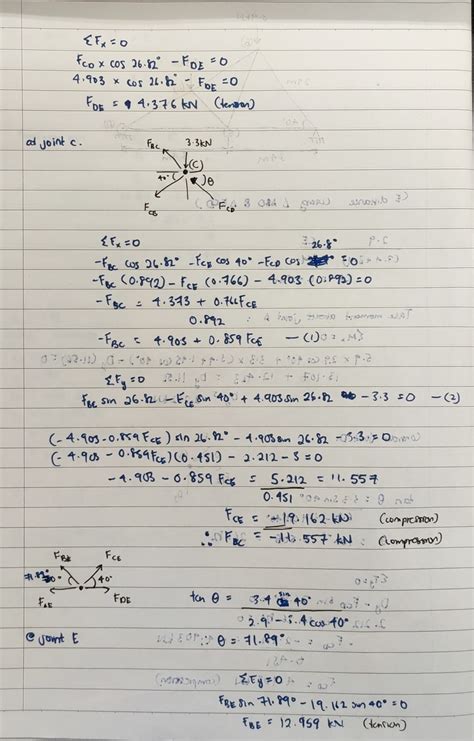 ΣFx = 0
FCD x cos 26.82° - FDE = 0
4.903 x cos 26.82° - FDE = 0
FDE = 4.376 kN (tension)
at joint C.
FBC 3.3kN
(C)
40° θ
FCE FCD
ΣFx = 0
-FBC cos 26.82° - FCE cos 40° - FCD cos 26.8° = 0
-FBC (0.892) - FCE (0.766) - 4.903 (0.892) = 0
-FBC = 4.373 + 0.766FCE
0.892
-FBC = 4.903 + 0.859 FCE — (1)
ΣFy = 0
FBC sin 26.82 - FCE sin 40° + 4.903 sin 26.82 - 3.3 = 0 — (2)
(-4.903 - 0.859 FCE) sin 26.82° - 4.903 sin 26.82 - 3.3 = 0
(-4.903 - 0.859FCE)(0.451) - 2.212 - 3 = 0
-4.903 - 0.859 FCE = 5.212 = 11.557
0.451
FCE = -19.162 kN (compression)
∴ FBC = -11.557 kN (compression)
FBE FCE
71.89° 40°
FAE FDE
tan θ = 3.4 sin 40°
2.9 - 3.4 cos 40°
@ joint E
θ = 71.89°
ΣFy = 0
FBE sin 71.89° - 19.162 sin 40° = 0
FBE = 12.959 kN (tension)